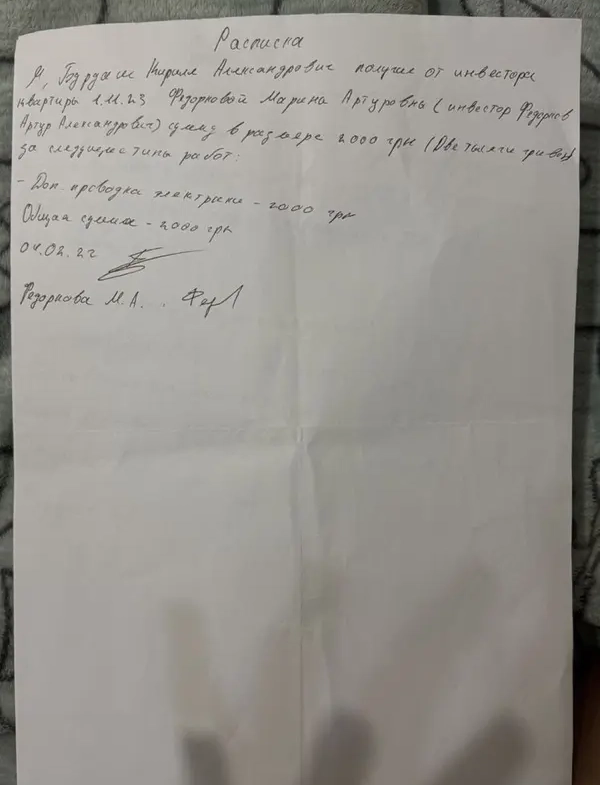 Расписка
Я, Бурдаш Кирилл Александрович получил от инвестора
квартиры 1.11.23 Федорковой Марина Артуровны (инвестор Федорков
Артур Александрович) сумму в размере 2000 грн (Две тысячи гривен)
за следующие типы работ:
- Доп. проводка электрики - 2000 грн
Общая сумма - 2000 грн
04.02.22
Федоркова М.А.